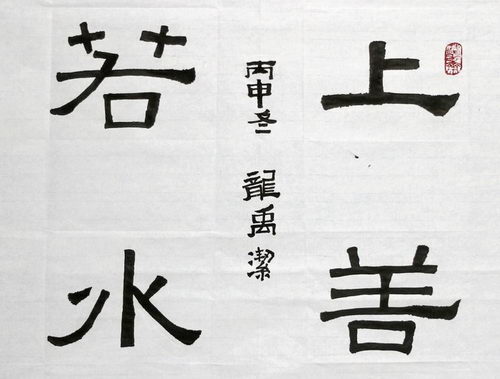 上善
若水
丙申冬 龍禹潔